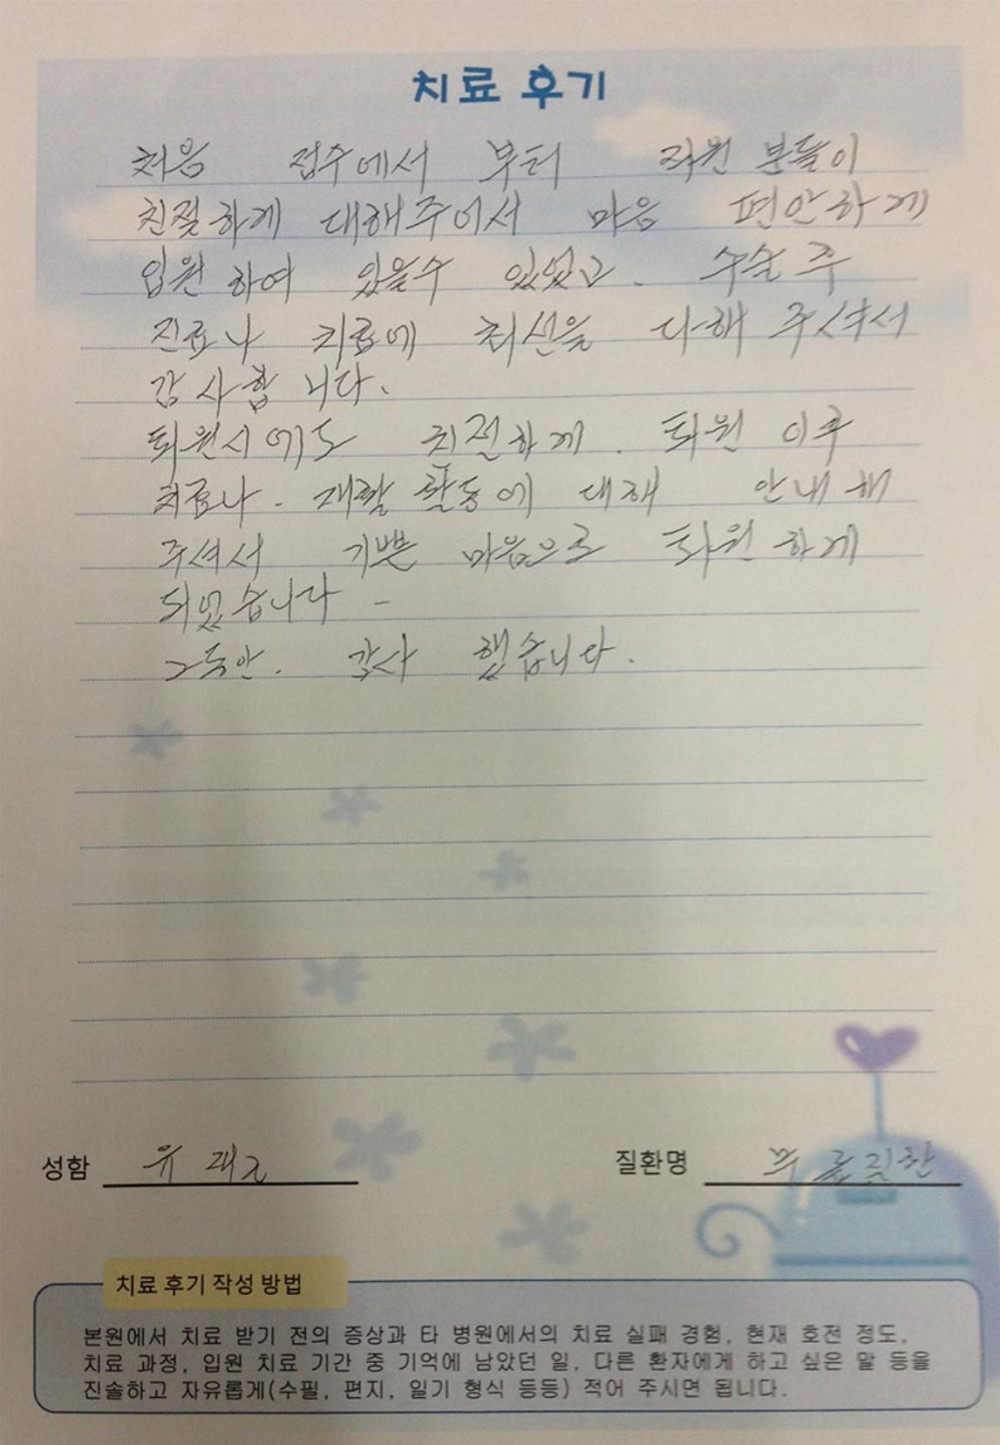 치료 후기
처음 접수에서 부터 직원 분들이
친절하게 대해주어서 마음 편안하게
입원 하여 있을수 있었고. 수술 후
진료나 치료에 최선을 다해 주셔서
감사합 니다.
퇴원시에도 친절하게. 퇴원 이후
치료나. 재활 활동에 대해 안내 해
주셔서 기쁜 마음으로 퇴원 하게
되었습니다 -
그동안. 감사 했습니다.
성함 유
질환명
치료 후기 작성 방법
본원에서 치료 받기 전의 증상과 타 병원에서의 치료 실패 경험, 현재 호전 정도,
치료 과정, 입원 치료 기간 중 기억에 남았던 일, 다른 환자에게 하고 싶은 말 등을
진솔하고 자유롭게(수필, 편지, 일기 형식 등등) 적어 주시면 됩니다.